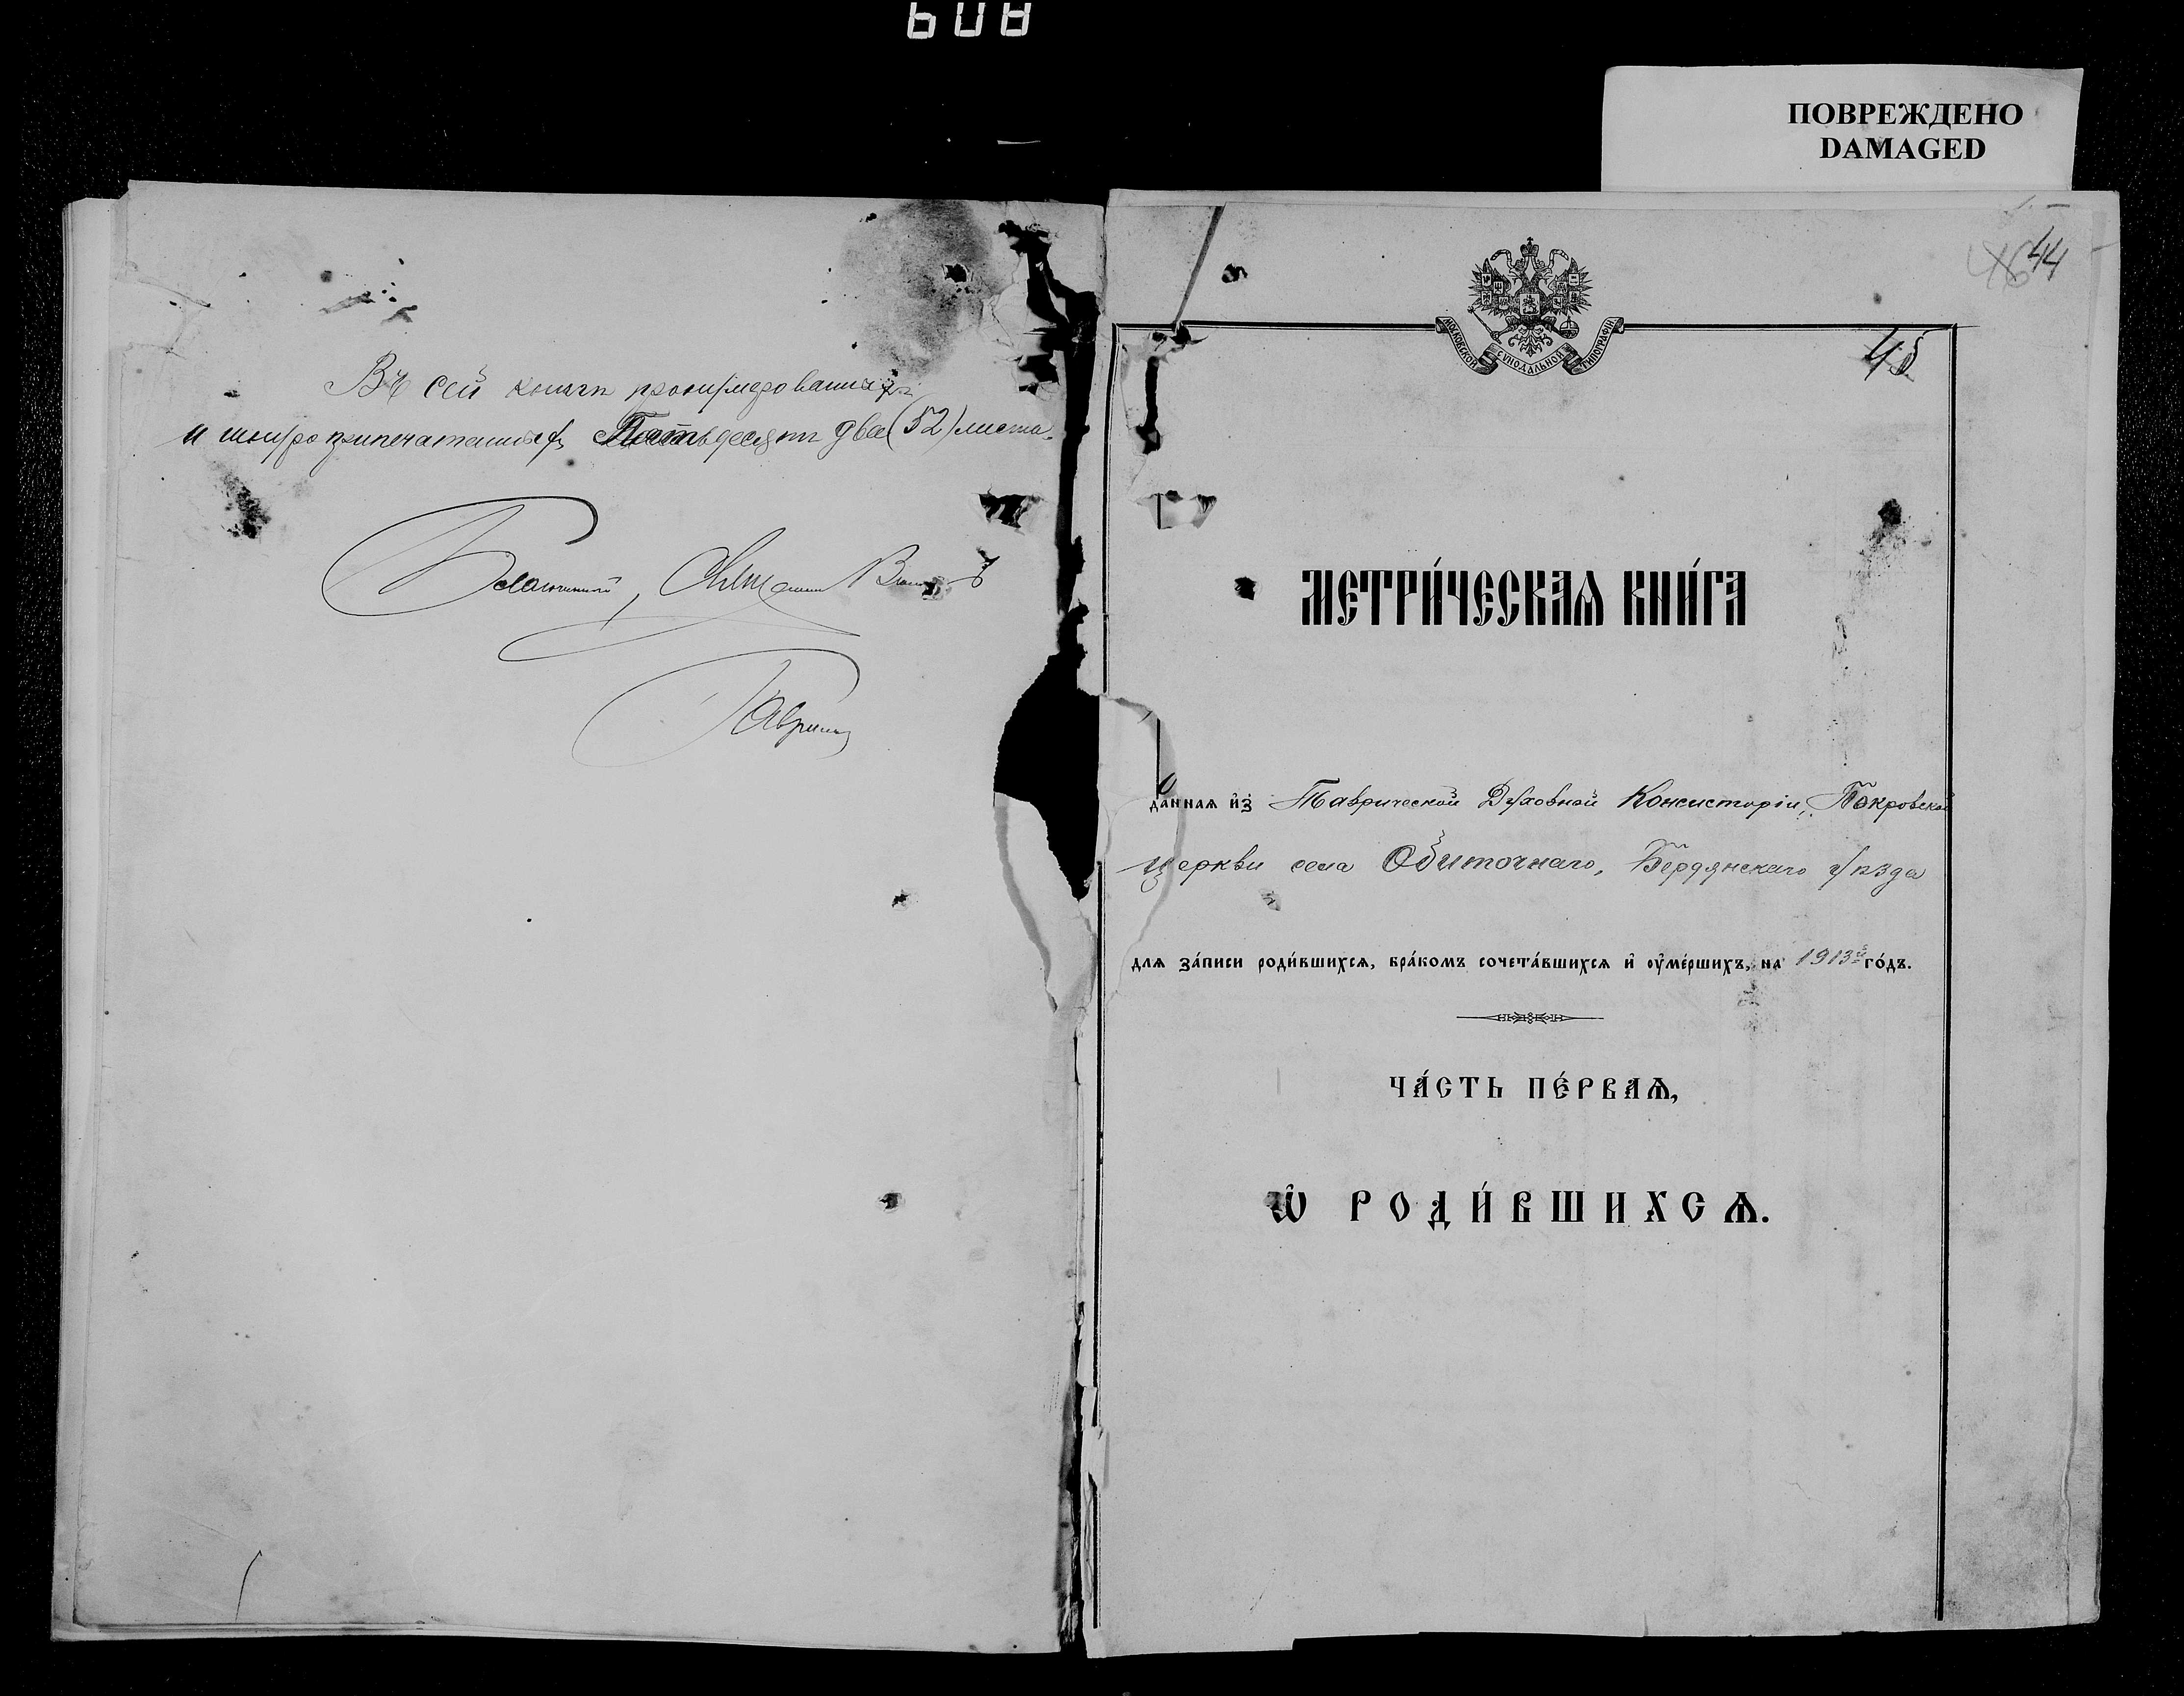 608
ПОВРЕЖДЕНО
DAMAGED
Въ сей книгѣ пронумерованныхъ
и шнуроприпечатанныхъ Пятьдесятъ два (52) листа.
Благочинный, Священникъ
Гавриилъ
46 44
МОСКОВСКОЙ СѴНОДАЛЬНОЙ ТИПОГРАФІИ
45
МЕТРИ́ЧЕСКАѦ КНИ́ГА
да́ннаѧ и҆з̾ Таврической Духовной Консисторіи, Покровской
церкви села Обиточнаго, Бердянскаго уѣзда
длѧ за́писи роди́вшихсѧ, бра́комъ сочета́вшихсѧ и҆ ᲂу҆ме́ршихъ, на 1913й го́дъ.
ЧА́СТЬ ПЕ́РВАѦ,
Ѡ҆ РОДИ́ВШИХСѦ.